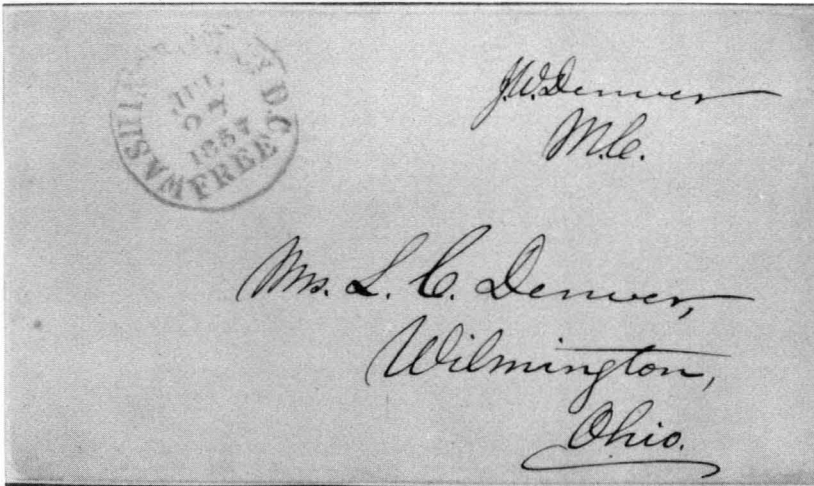 WASHINGTON D.C.
JUL
1857
FREE
J.W. Denver
M.C.
Mrs. L. C. Denver,
Wilmington,
Ohio.